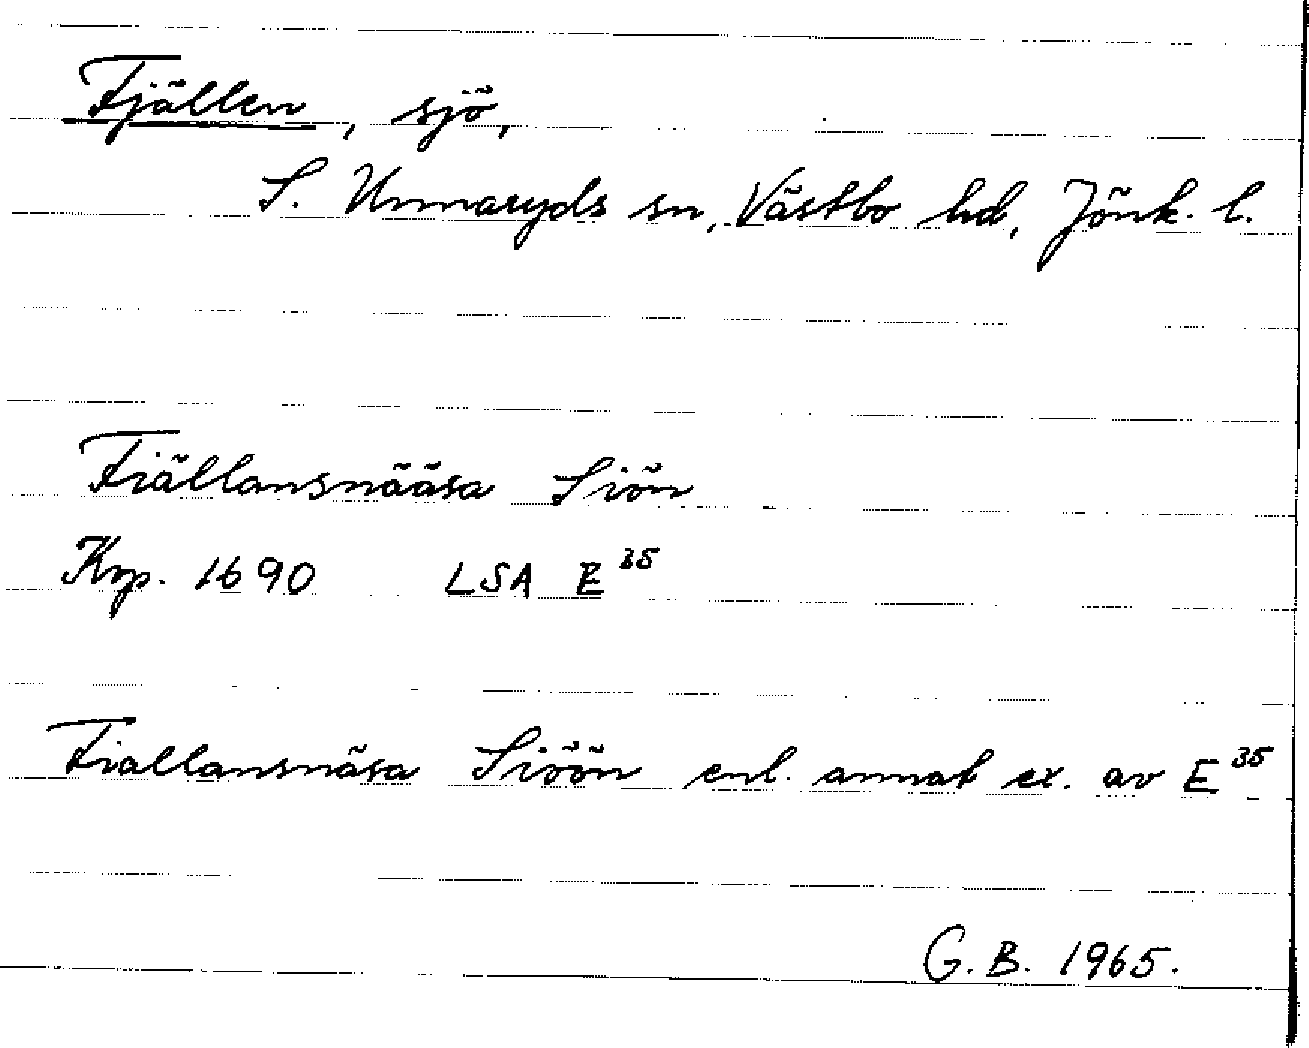 Fjällen, sjö,
S. Unnaryds sn, Västbo hd, Jönk. l.
Fiällansnääsa Siön
Krp. 1690 LSA E 35
Fiallansnäsa Siöön enl. annat ex. av E 35
G. B. 1965.